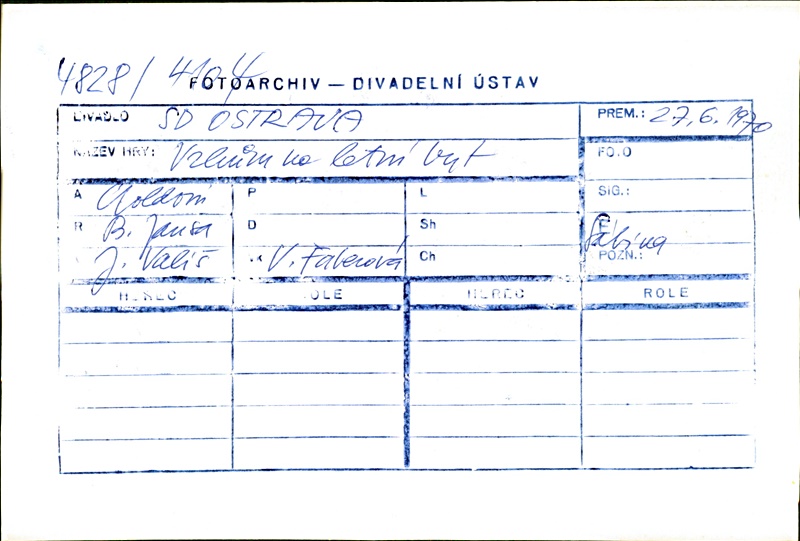 4828/4104
FOTOARCHIV — DIVADELNÍ ÚSTAV
DIVADLO SD OSTRAVA PREM.: 27.6.1970
NÁZEV HRY: Vzhůru na letní byt FOTO
A Goldoni P L SIG.:
R B. Jansa D Sh
J. Vališ K V. Faberová Ch POZN.: Sabina
HEREC ROLE HEREC ROLE